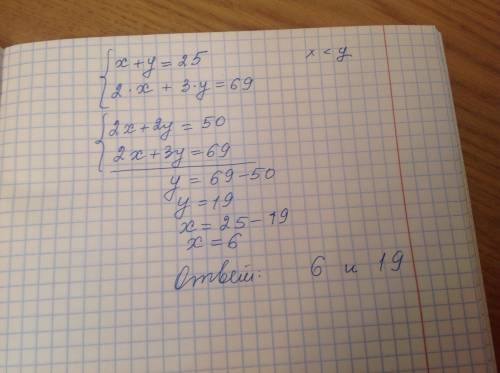 x + y = 25 x < y
2·x + 3·y = 69
2x + 2y = 50
2x + 3y = 69
y = 69 - 50
y = 19
x = 25 - 19
x = 6
Ответ: 6 и 19